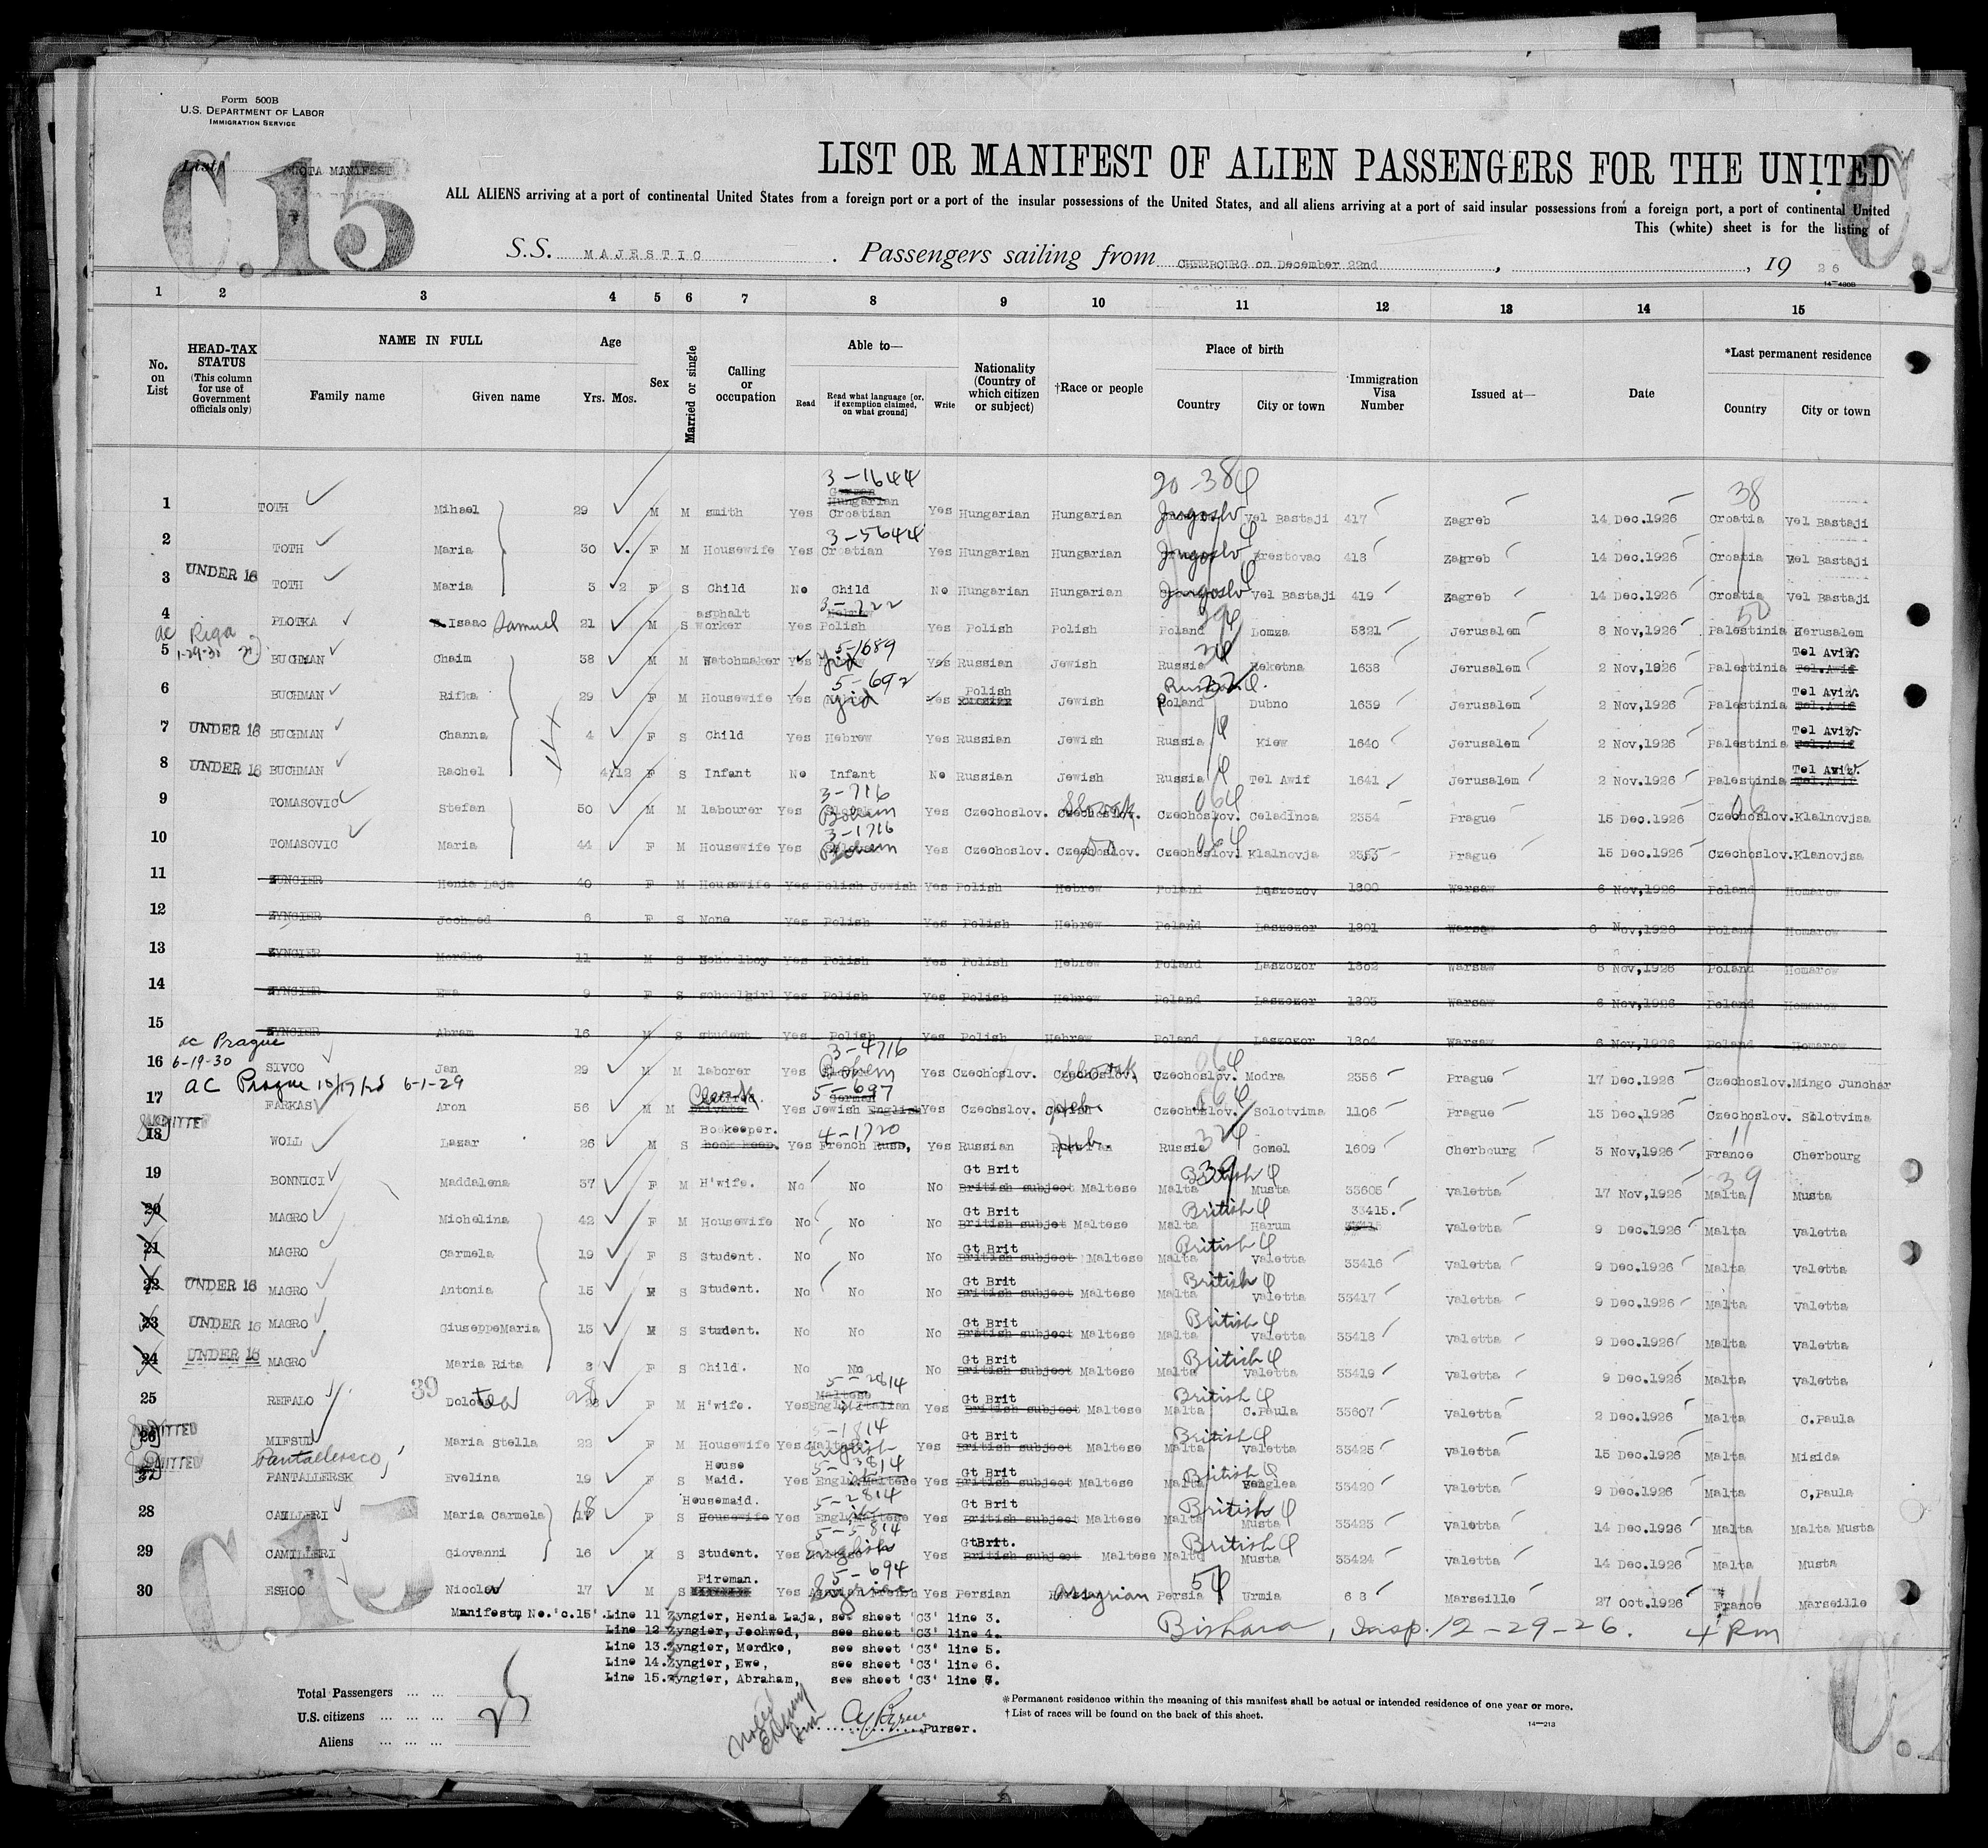 Form 500B
U.S. DEPARTMENT OF LABOR
IMMIGRATION SERVICE
List QUOTA MANIFEST
C.15
LIST OR MANIFEST OF ALIEN PASSENGERS FOR THE UNITED
ALL ALIENS arriving at a port of continental United States from a foreign port or a port of the insular possessions of the United States, and all aliens arriving at a port of said insular possessions from a foreign port, a port of continental United
This (white) sheet is for the listing of
S.S. MAJESTIC . Passengers sailing from CHERBOURG on December 22nd , , 19 26
14—480B
1 2 3 4 5 6 7 8 9 10 11 12 13 14 15
No. on List HEAD-TAX STATUS (This column for use of Government officials only) NAME IN FULL Family name Given name Age Yrs. Mos. Sex Married or single Calling or occupation Able to— Read Read what language [or, if exemption claimed, on what ground] Write Nationality (Country of which citizen or subject) †Race or people Place of birth Country City or town Immigration Visa Number Issued at— Date *Last permanent residence Country City or town
3-1644 20-38
1 TOTH Mihael 29 M M smith Yes Hungarian Croatian Yes Hungarian Hungarian Jugoslv Vel Bastaji 417 Zagreb 14 Dec.1926 38 Croatia Vel Bastaji
3-5644
2 TOTH Maria 30 F M Housewife Yes Croatian Yes Hungarian Hungarian Jugoslv Brestovac 418 Zagreb 14 Dec.1926 Croatia Vel Bastaji
3 UNDER 16 TOTH Maria 3 2 F S Child No Child No Hungarian Hungarian Jugoslv Vel Bastaji 419 Zagreb 14 Dec.1926 Croatia Vel Bastaji
3-722
4 PLOTKA Isaac Samuel 21 M S asphalt worker Yes Hebrew Polish Yes Polish Polish Poland Lomza 5821 Jerusalem 8 Nov,1926 Palestinia Herusalem
ac Riga 1-29-30
5-1689
5 BUCHMAN Chaim 38 M M Watchmaker Yes Yid Yes Russian Jewish Russia Reketna 1638 Jerusalem 2 Nov,1926 Palestinia Tel Aviv. Tel.Awif
5-692
6 BUCHMAN Rifka 29 F M Housewife Yes Yid Yes Polish Russian Jewish Russia Poland Dubno 1639 Jerusalem 2 Nov,1926 Palestinia Tel Aviv. Tel.Awif
7 UNDER 16 BUCHMAN Channa 4 F S Child Yes Hebrew Yes Russian Jewish Russia Kiew 1640 Jerusalem 2 Nov,1926 Palestinia Tel Aviv. Tel.Awif
8 UNDER 16 BUCHMAN Rachel 4/12 F S Infant No Infant No Russian Jewish Russia Tel Awif 1641 Jerusalem 2 Nov.1926 Palestinia Tel Aviv. Tel.Awif
3-716
9 TOMASOVIC Stefan 50 M M labourer Yes Bohem Yes Czechoslov. Slovak Czechoslov. Czechoslov. Celadinca 2354 Prague 15 Dec.1926 Czechoslov. Klalnovjsa
3-1716
10 TOMASOVIC Maria 44 F M Housewife Yes Bohem Yes Czechoslov. Czechoslov. Czechoslov. Klalnovja 2355 Prague 15 Dec.1926 Czechoslov. Klanovjsa
11 ZYNGIER Henia Laja 40 F M Housewife Yes Polish Jewish Yes Polish Hebrew Poland Loszczov 1300 Warsaw 6 Nov,1926 Poland Homarow
12 ZYNGIER Jochwed 6 F S None Yes Polish Yes Polish Hebrew Poland Laszczor 1301 Warsaw 6 Nov,1926 Poland Homarow
13 ZYNGIER Mordko 11 M S Schoolboy Yes Polish Yes Polish Hebrew Poland Laszczor 1302 Warsaw 6 Nov,1926 Poland Homarow
14 ZYNGIER Ewa 9 F S schoolgirl Yes Polish Yes Polish Hebrew Poland Laszczor 1303 Warsaw 6 Nov,1926 Poland Homarow
15 ZYNGIER Abram 16 M S student Yes Polish Yes Polish Hebrew Poland Laszczor 1304 Warsaw 6 Nov,1926 Poland Homarow
ac Prague 6-19-30
3-4716
16 SIVCO Jan 29 M M laborer Yes Bohem Yes Czechoslov. Slovak Czechoslov. Czechoslov. Modra 2356 Prague 17 Dec.1926 Czechoslov. Mingo Junchar
AC Prague 6-1-29
5-697
17 FARKAS Aron 56 M M Clerk private Yes German Jewish English Yes Czechslov. Heb Czechoslov. Solotvima 1106 Prague 13 Dec.1926 Czechoslov. Slotvima
ADMITTED 4-1720
18 WOLL Lazar 26 M S Bookeeper. book keep. Yes French Russ, Yes Russian Heb Russia Gomel 1609 Cherbourg 3 Nov,1926 France Cherbourg
19 BONNICI Maddalena 37 F M H'wife. No No No Gt Brit British subject Maltese British Malta Musta 33605 Valetta 17 Nov,1926 39 Malta Musta
20 MAGRO Michelina 42 F M Housewife No No No Gt Brit British subjet Maltese British Malta Harum 33415. Valetta 9 Dec.1926 Malta Valetta
21 MAGRO Carmela 19 F S Student. No No No Gt Brit British subject Maltese British Malta Valetta 33416 Valetta 9 Dec.1926 Malta Valetta
22 UNDER 16 MAGRO Antonia 15 S Student. No No No Gt Brit British subject Maltese British Malta Valetta 33417 Valetta 9 Dec.1926 Malta Valetta
23 UNDER 16 MAGRO GiuseppeMaria 13 M S Student. No No No Gt Brit British subject Maltese British Malta Valetta 33418 Valetta 9 Dec.1926 Malta Valetta
24 UNDER 16 MAGRO Maria Rita 8 F S Child. No No No Gt Brit British subject Maltese British Malta Valetta 33419 Valetta 9 Dec.1926 Malta Valetta
5-2814
25 REFALO 39 28 F M H'wife. Yes Maltese English Italian Yes Gt Brit British subject Maltese British Malta C.Paula 33607 Valetta 2 Dec.1926 Malta C.Paula
ADMITTED 5-1814
26 MIFSUD Maria Stella 22 F M Housewife Yes Maltese English Yes Gt Brit British subject Maltese British Malta Valetta 33425 Valetta 15 Dec.1926 Malta Misida
ADMITTED Pantallersco 5-3814
27 PANTALLERSK Evelina 19 F S House Maid. Yes English Maltese Yes Gt Brit British subject Maltese British Malta Senglea 33420 Valetta 9 Dec.1926 Malta C,Paula
5-2814
28 CAMILLERI Maria Carmela 18 F S Housemaid. Housewife Yes English Maltese Yes Gt Brit British subject Maltese British Malta Musta 33423 Valetta 14 Dec.1926 Malta Malta Musta
5-5814
29 CAMILLERI Giovanni 16 M S Student. Yes English Yes GtBrit. British subject Maltese British Malta Musta 33424 Valetta 14 Dec.1926 Malta Musta
5-694
30 ESHOO Nicolas 17 M S Fireman. Yes French Yes Persian Assyrian Persia Urmia 68 Marseille 27 Oct.1926 France Marseille
C.15
Manifestm No.'c.15'. Line 11 Zyngier, Henia Laja, see sheet 'C3' line 3.
Line 12 Zyngier, Jochwed, see sheet 'C3' line 4.
Line 13. Zyngier, Mordke, see sheet 'C3' line 5.
Line 14. Zyngier, Ewe, see sheet 'C3' line 6.
Line 15. Zyngier, Abraham, see sheet 'C3' line 7.
Bishara, Insp. 12-29-26. 4 Pm
Total Passengers ... ...
U.S. citizens ... ... ... 25
Aliens ... ... ...
Purser.
*Permanent residence within the meaning of this manifest shall be actual or intended residence of one year or more.
†List of races will be found on the back of this sheet.
14—213